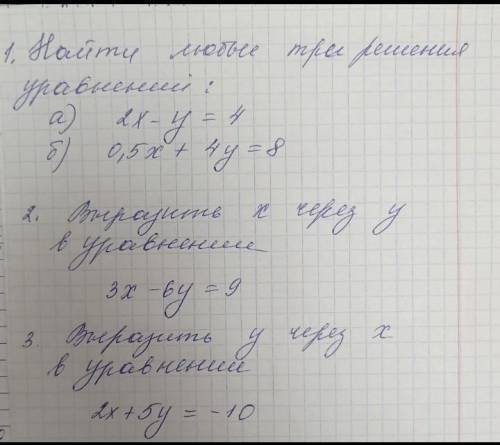 1. Найти любые три решения
уравнений:
а) 2x - y = 4
б) 0,5x + 4y = 8
2. Выразить x через y
в уравнении
3x - 6y = 9
3. Выразить y через x
в уравнении
2x + 5y = -10